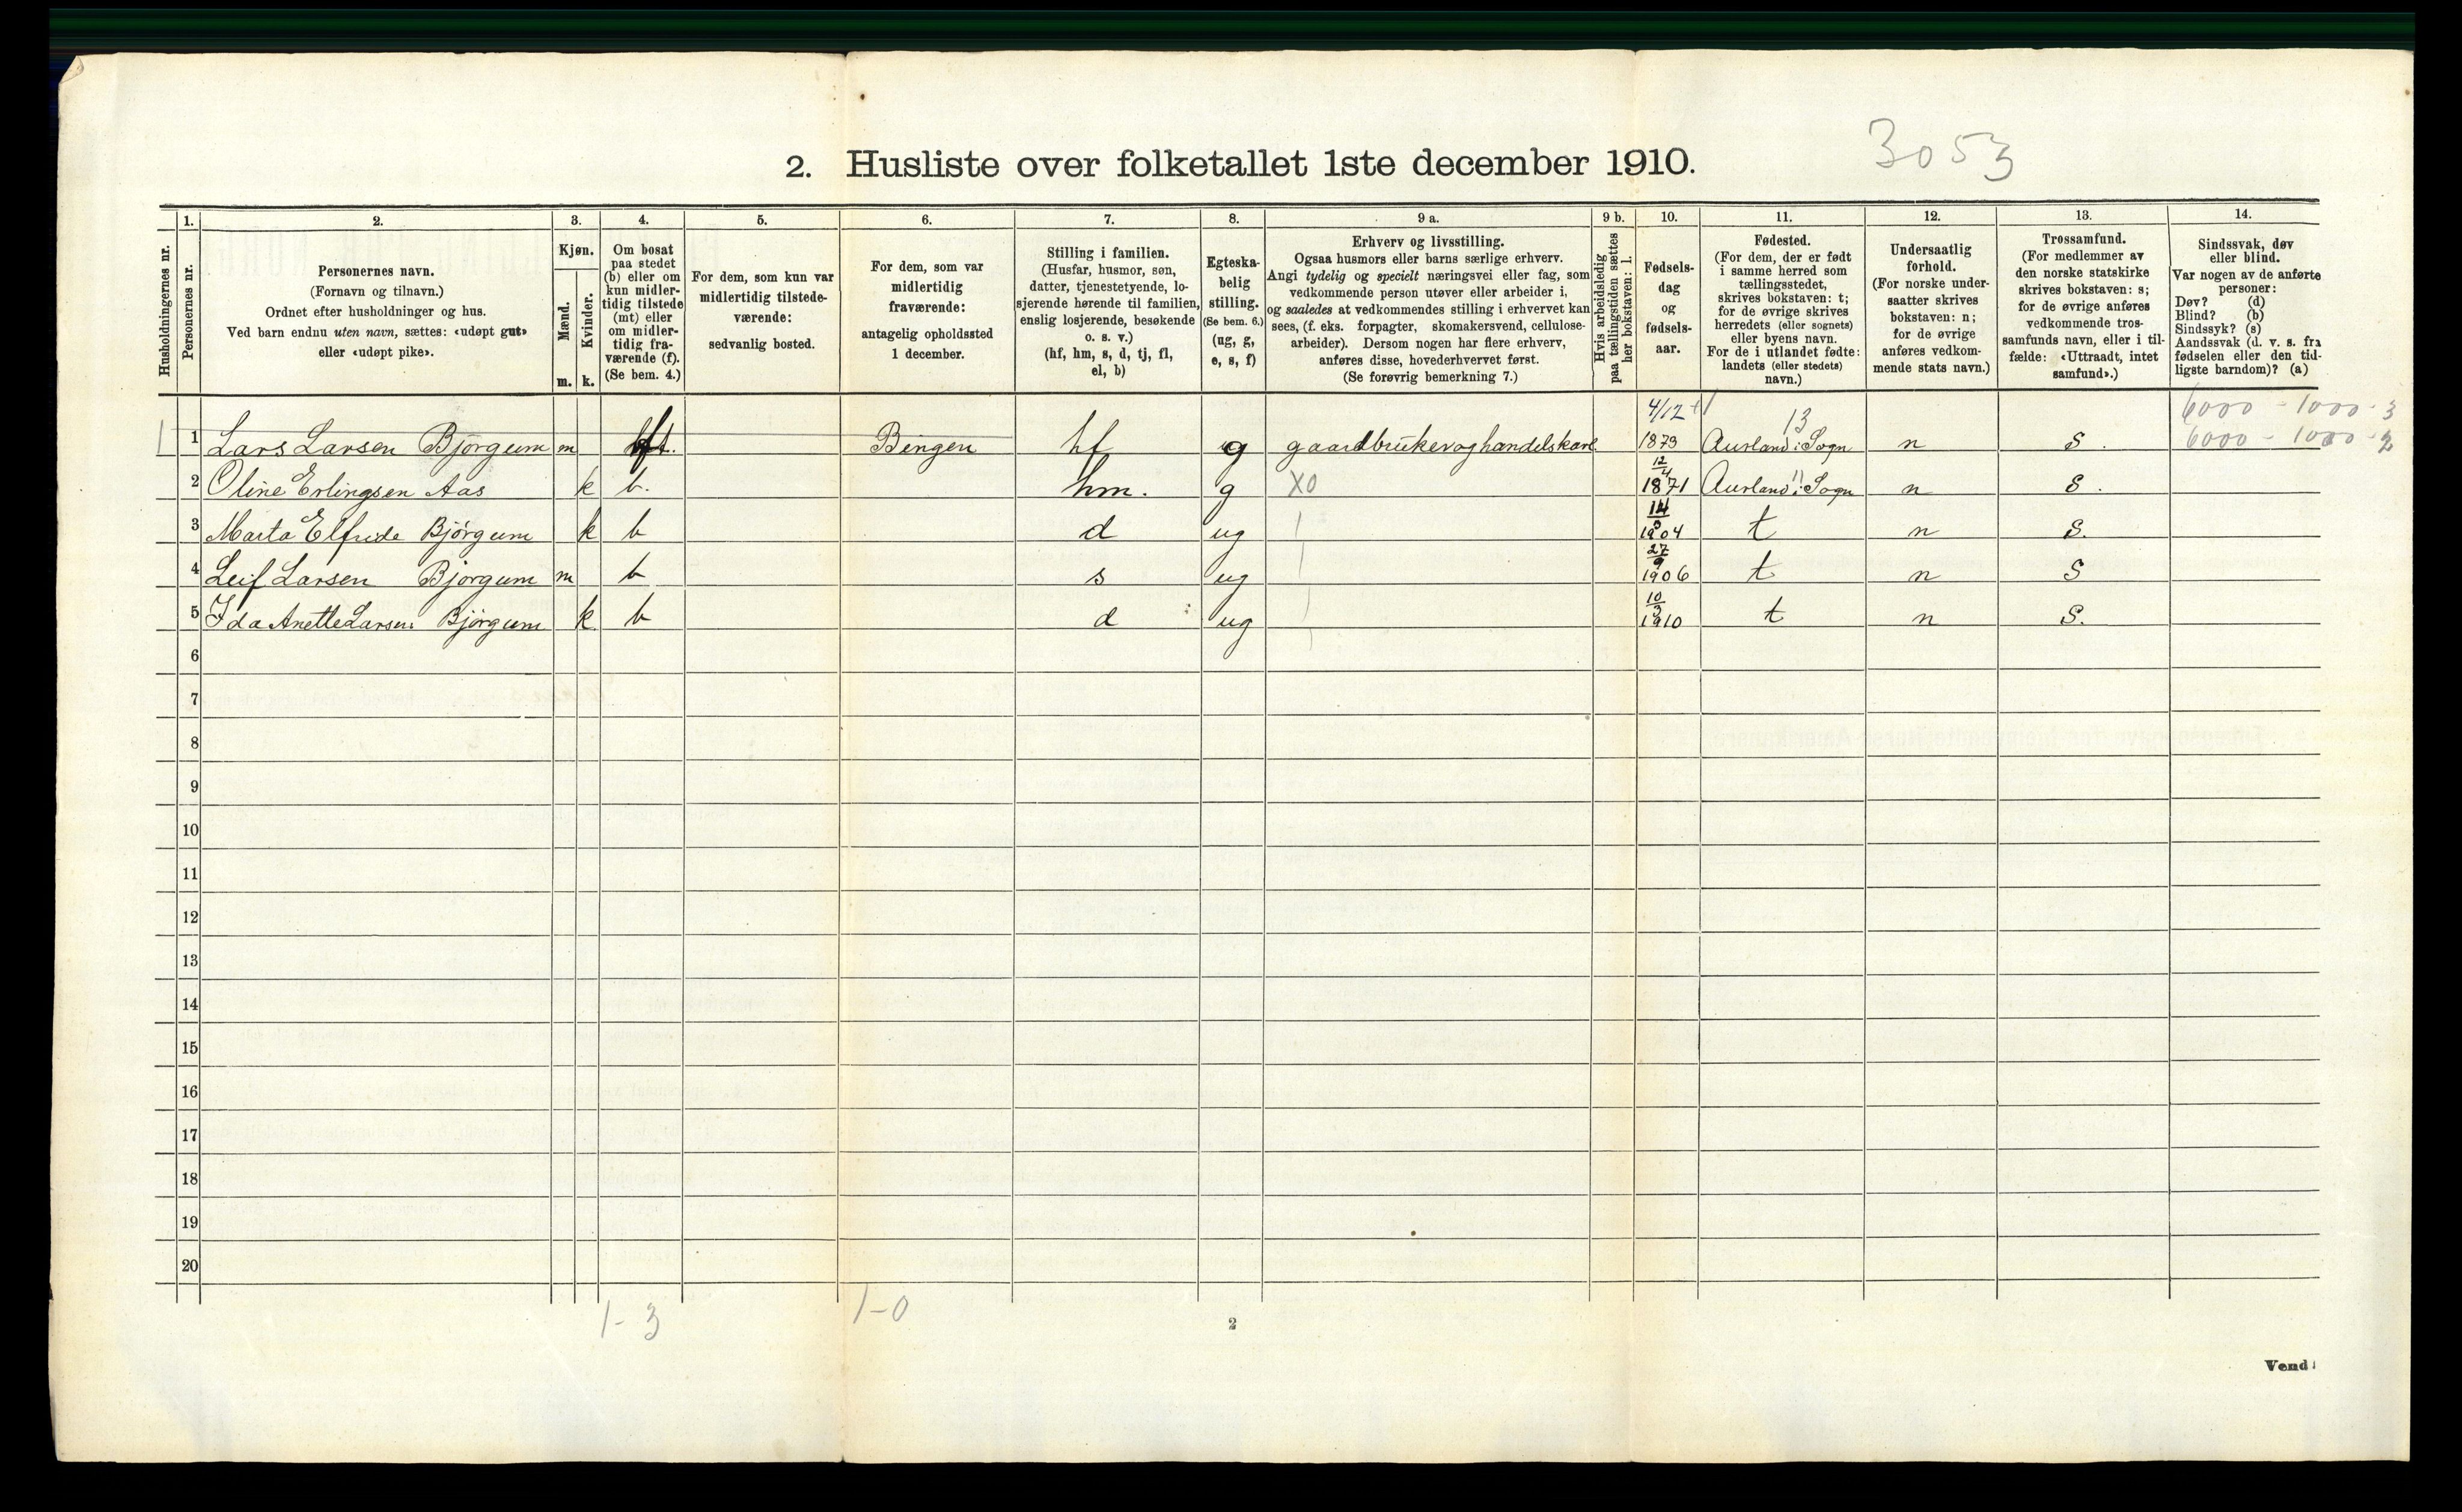 3053
2. Husliste over folketallet 1ste december 1910.
Husholdningernes nr.
1.
Personernes nr.
2.
Personernes navn.
(Fornavn og tilnavn.)
Ordnet efter husholdninger og hus.
Ved barn endnu uten navn, sættes: «udøpt gut»
eller «udøpt pike».
3.
Kjøn.
Mænd.
m.
Kvinder.
k.
4.
Om bosat
paa stedet
(b) eller om
kun midler-
tidig tilstede
(mt) eller
om midler-
tidig fra-
værende (f).
(Se bem. 4.)
5.
For dem, som kun var
midlertidig tilstede-
værende:
sedvanlig bosted.
6.
For dem, som var
midlertidig
fraværende:
antagelig opholdssted
1 december.
7.
Stilling i familien.
(Husfar, husmor, søn,
datter, tjenestetyende, lo-
sjerende hørende til familien,
enslig losjerende, besøkende
o. s. v.)
(hf, hm, s, d, tj, fl,
el, b)
8.
Egteska-
belig
stilling.
(Se bem. 6.)
(ug, g,
e, s, f)
9 a.
Erhverv og livsstilling.
Ogsaa husmors eller barns særlige erhverv.
Angi tydelig og specielt næringsvei eller fag, som
vedkommende person utøver eller arbeider i,
og saaledes at vedkommendes stilling i erhvervet kan
sees, (f. eks. forpagter, skomakersvend, cellulose-
arbeider). Dersom nogen har flere erhverv,
anføres disse, hovederhvervet først.
(Se forøvrig bemerkning 7.)
9 b.
Hvis arbeidsledig
paa tællingstiden sættes
her bokstaven: l.
10.
Fødsels-
dag
og
fødsels-
aar.
11.
Fødested.
(For dem, der er født
i samme herred som
tællingsstedet,
skrives bokstaven: t;
for de øvrige skrives
herredets (eller sognets)
eller byens navn.
For de i utlandet fødte:
landets (eller stedets)
navn.)
12.
Undersaatlig
forhold.
(For norske under-
saatter skrives
bokstaven: n;
for de øvrige
anføres vedkom-
mende stats navn.)
13.
Trossamfund.
(For medlemmer av
den norske statskirke
skrives bokstaven: s;
for de øvrige anføres
vedkommende tros-
samfunds navn, eller i til-
fælde: «Uttraadt, intet
samfund».)
14.
Sindssvak, døv
eller blind.
Var nogen av de anførte
personer:
Døv? (d)
Blind? (b)
Sindssyk? (s)
Aandssvak (d. v. s. fra
fødselen eller den tid-
ligste barndom)? (a)
6000 - 1000 - 3
1 1 Lars Larsen Bjørgum m Bergen hf g gaardbruker og handelskarl 4/12 1879 13 Aurland i Sogn n S. 6000 - 1000 - 2
2 Oline Erlingsen Aas k b. hm. g X0 12/4 1871 Aurland i Sogn n S.
3 Marta Elfride Bjørgum k b d ug 14 1904 t n S.
4 Leif Larsen Bjørgum m b s ug 27/9 1906 t n S
5 Ida Anette Larsen Bjørgum k b d ug 10/3 1910 t n S.
6
7
8
9
10
11
12
13
14
15
16
17
18
19
20
1-3 1-0
2
Vend!